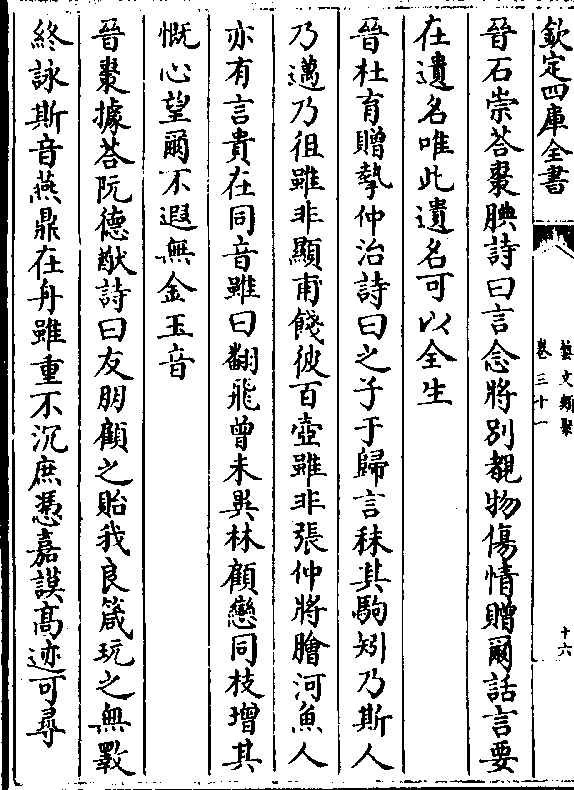 欽定四庫全書
藝文類聚
卷三十一
十六
晉石崇荅棗腆詩曰言念將别覩物傷情贈爾話言要
在遺名唯此遺名可以全生
晉杜育贈摯仲治詩曰之子于歸言秣其駒矧乃斯人
乃邁乃徂雖非顯甫餞彼百壺雖非張仲將膾河魚人
亦有言貴在同音雖曰翻飛曾未異林顧戀同枝增其
慨心望爾不遐無金玉音
晉棗據荅阮德猷詩曰友朋顧之貽我良箴玩之無斁
終詠斯音燕鼎在舟雖重不沉庶憑嘉謨髙迹可尋